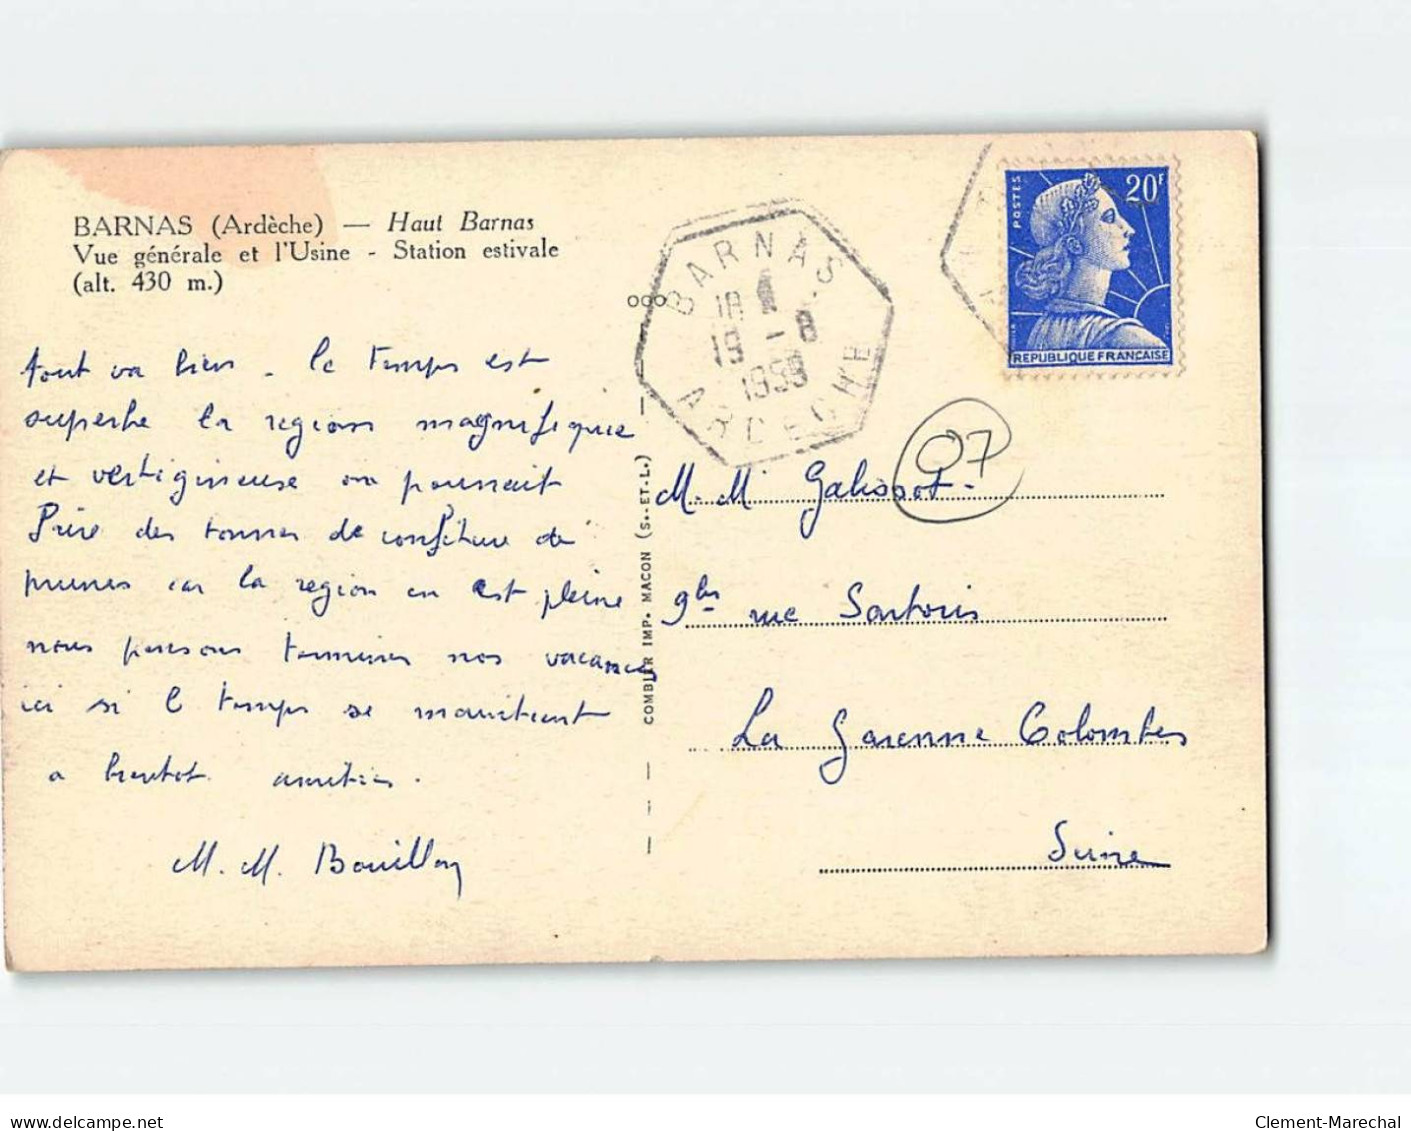 BARNAS (Ardèche) — Haut Barnas
Vue générale et l'Usine - Station estivale
(alt. 430 m.)
tout va bien - le temps est
superbe la region magnifique
et vertigineuse on pourrait
Faire des tonnes de confiture de
prunes car la region en est pleine
nous pensons terminer nos vacances
ici si le temps se maintient
a bientot amitiés.
M. M. Bouillon
COMBIER IMP. MACON (S.-ET-L.)
BARNAS
18
19 - 8
ARDECHE
POSTES
20F
REPUBLIQUE FRANÇAISE
07
M. M Galissot
9bis rue Sartoris
La Garenne Colombes
Seine
delcampe.net
Clement-Marechal